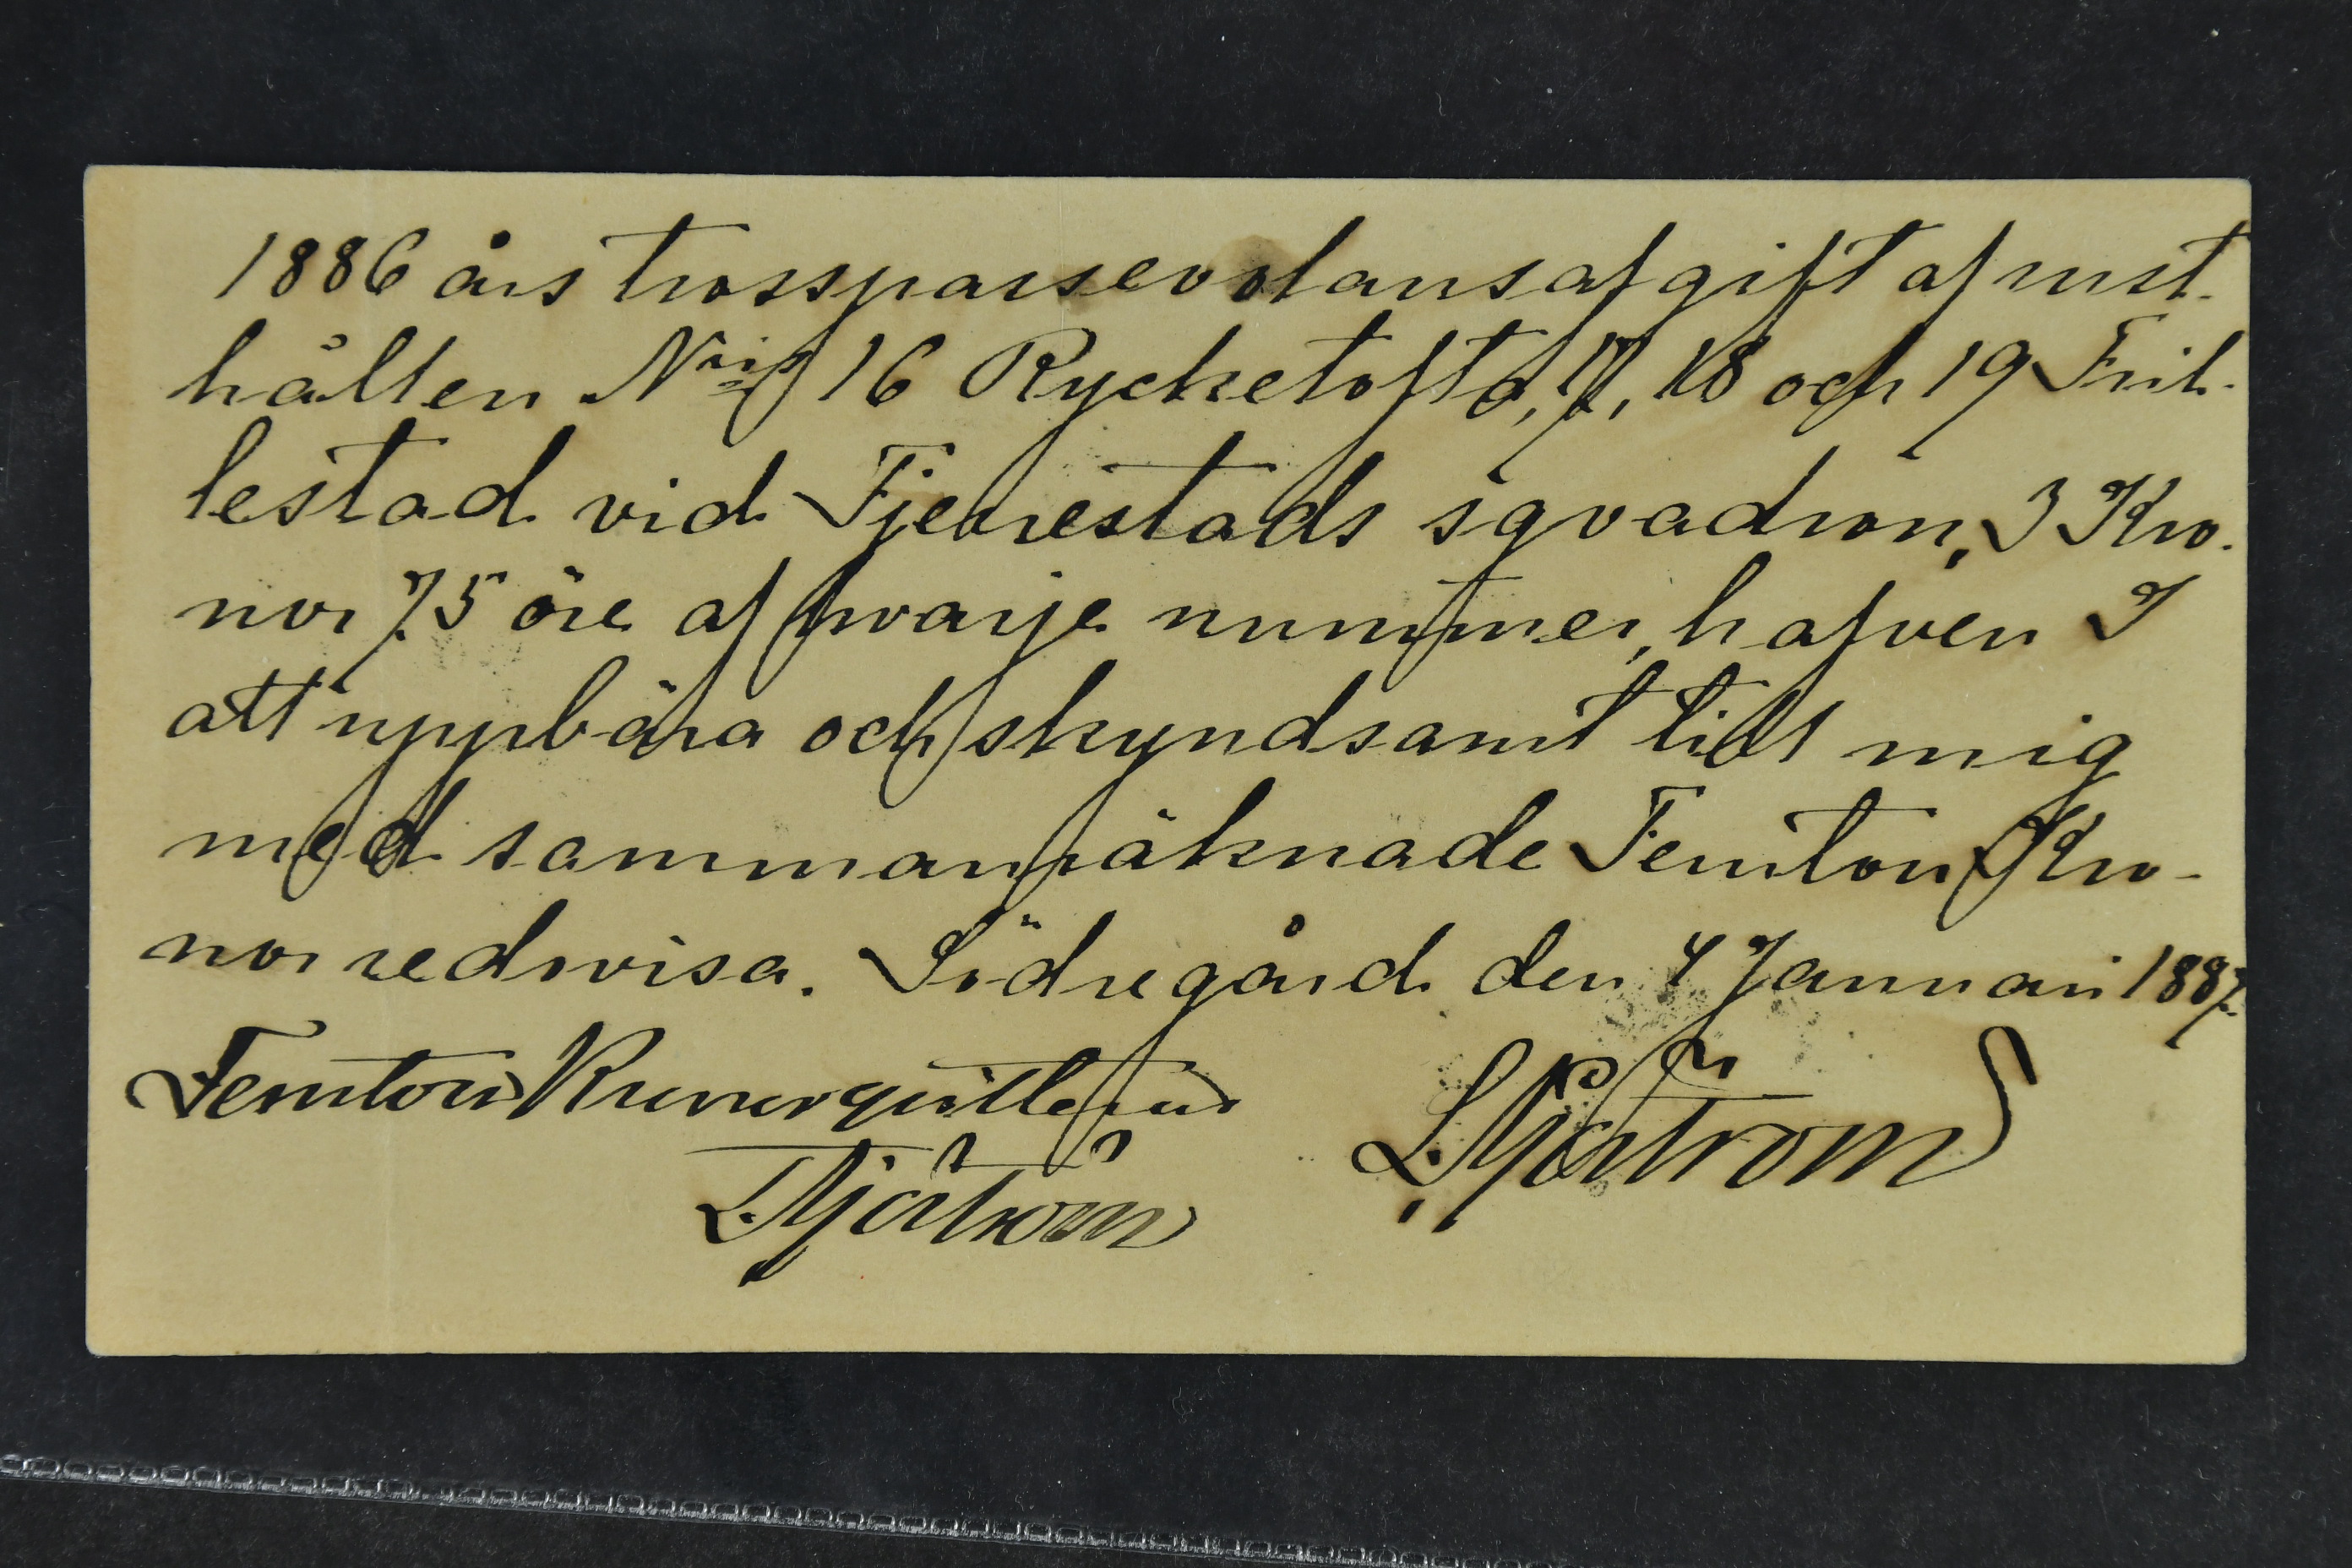 1886 års trosspassevolansafgift af rust-
hållen N:ris 16 Rycketofta, 17, 18 och 19 Fril-
lestad vid Fjerrestads sqvadron, 3 Kro-
nor 75 öre af hvarje nummer, hafven I
att uppbära och skyndsamt till mig
med sammanräknade Femton Kro-
nor redovisa. Södregård den 4 Januari 1887.
Femton Kronor quitteras
L. Sjöström
L. Sjöström